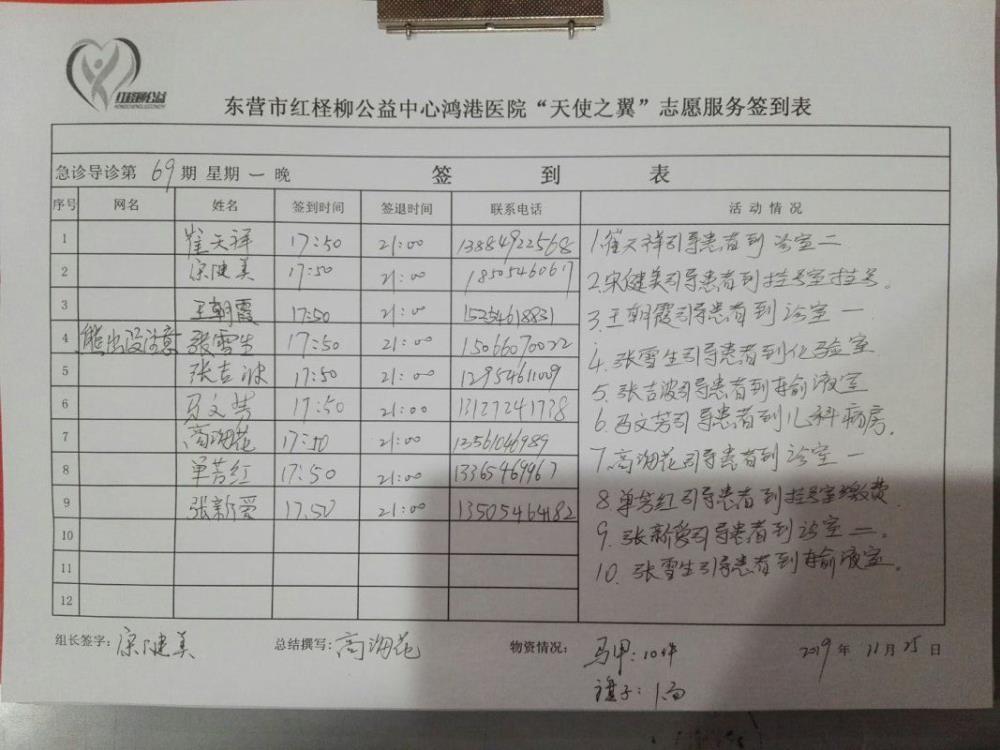 红柽柳公益
东营市红柽柳公益中心鸿港医院“天使之翼”志愿服务签到表
急诊导诊第 69 期 星期 一 晚 签 到 表
序号 网名 姓名 签到时间 签退时间 联系电话 活动情况
1 崔天祥 17:50 21:00 13884922568
2 宋健美 17:50 21:00 18505460617
3 王朝霞 17:50 21:00 15254618831
4 熊出没注意 张雪生 17:50 21:00 15066070022
5 张吉波 17:50 21:00 12954611009
6 马文芳 17:50 21:00 13127241738
7 高海花 17:50 21:00 12561046989
8 单芳红 17:50 21:00 13365469967
9 张新爱 17:50 21:00 13505464182
10
11
12
1.崔天祥引导患者到诊室二
2.宋健美引导患者到挂号室挂号。
3.王朝霞引导患者到诊室一
4.张雪生引导患者到化验室
5.张吉波引导患者到输液室
6.马文芳引导患者到儿科病房。
7.高海花引导患者到诊室一
8.单芳红引导患者到挂号室缴费
9.张新爱引导患者到诊室二。
10.张雪生引导患者到输液室。
组长签字: 宋健美 总结撰写: 高海花 物资情况: 马甲:10件 2019 年 11 月 25 日
旗子:1面